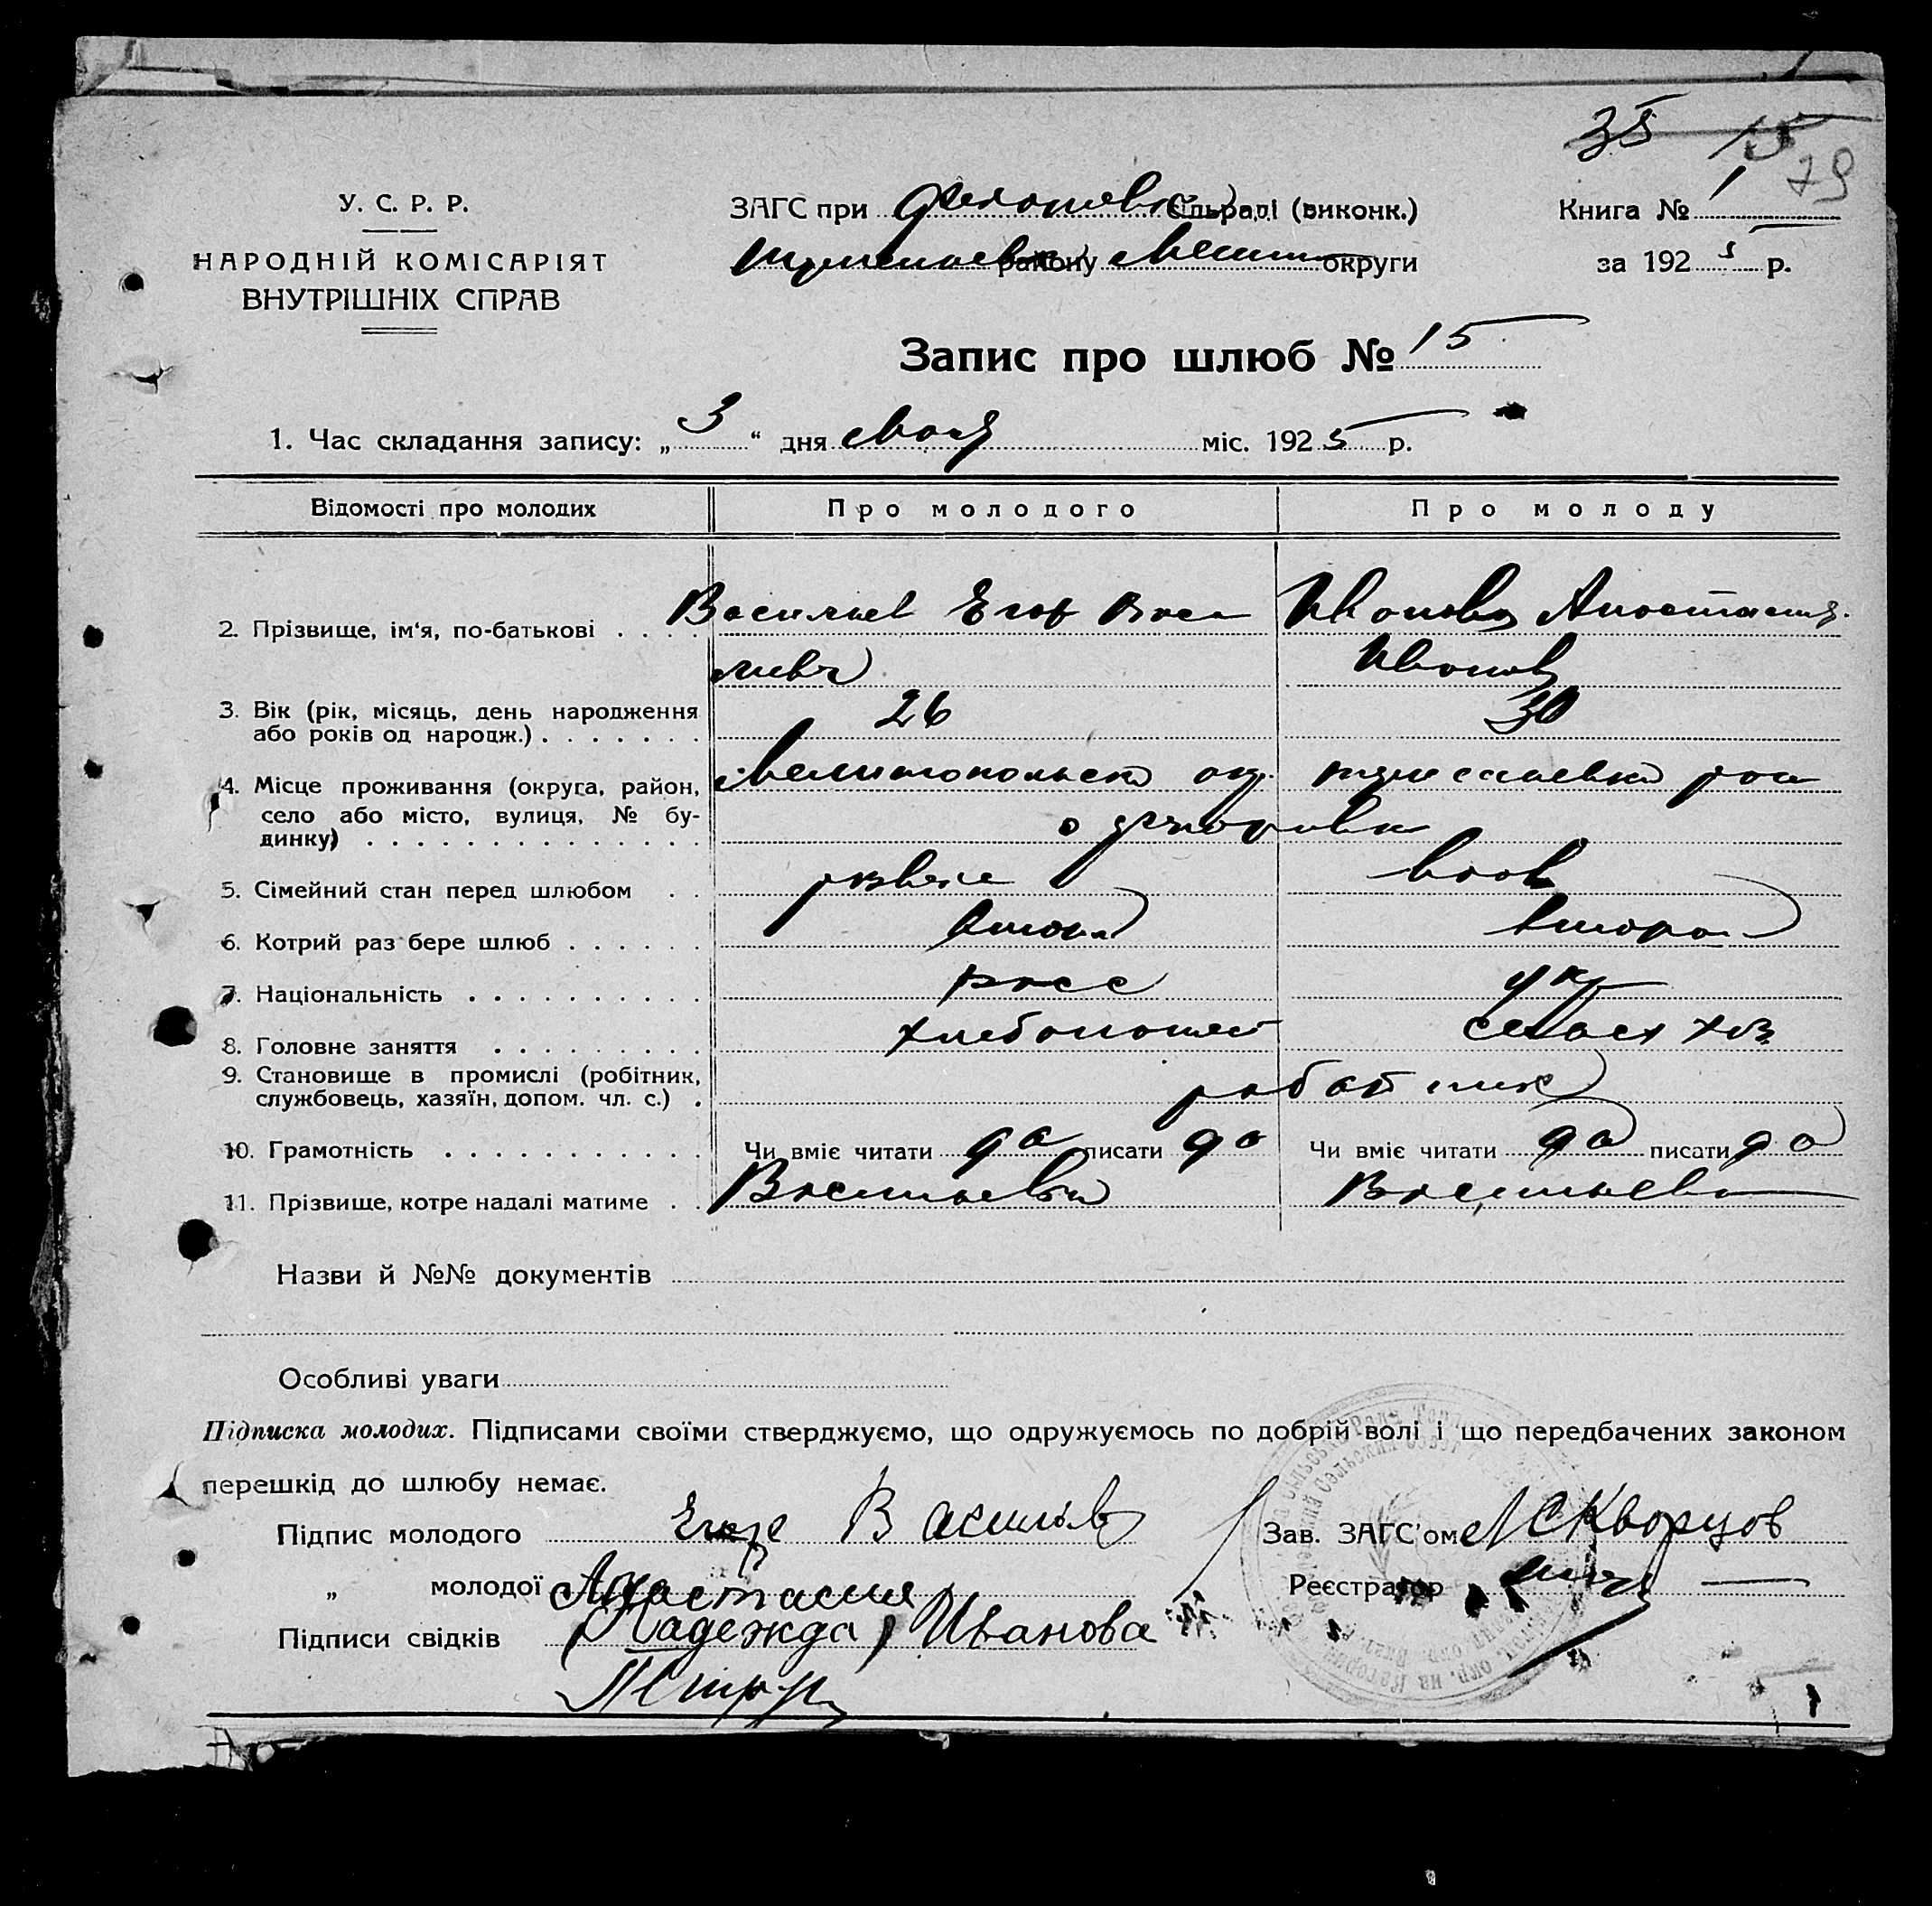 35 15
79
У. С. Р. Р.
НАРОДНІЙ КОМІСАРІЯТ
ВНУТРІШНІХ СПРАВ
ЗАГС при сільраді (виконк.)
району округи
Книга № 1
за 1925 р.
Запис про шлюб № 15
1. Час складання запису: „3“ дня мая міс. 1925 р.
Відомості про молодих Про молодого Про молоду
2. Прізвище, ім‘я, по-батькові Васильев Егор Васи Иванова Анастасия
Иванов
3. Вік (рік, місяць, день народження
або років од народж.) 26 30
4. Місце проживання (округа, район, Мелитопольск окр
село або місто, вулиця, № бу-
динку)
5. Сімейний стан перед шлюбом развед вдов
6. Котрий раз бере шлюб второй второй
7. Національність росс укр
8. Головне заняття хлебопашец сельск хоз
9. Становище в промислі (робітник,
службовець, хазяїн, допом. чл. с.) работник
10. Грамотність Чи вміє читати да писати да Чи вміє читати да писати да
11. Прізвище, котре надалі матиме Васильев Васильева
Назви й №№ документів
Особливі уваги
Підписка молодих. Підписами своїми стверджуємо, що одружуємось по добрій волі і що передбачених законом
перешкід до шлюбу немає.
Підпис молодого Егор Васильев Зав. ЗАГС'ом Скворцов
„ молодої Анастасия Реєстратор
Підписи свідків Надежда Иванова